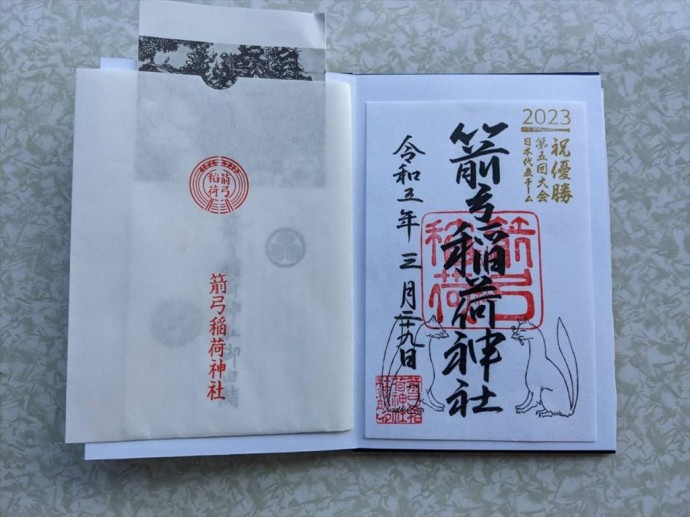 箭弓
稲荷
箭弓稲荷神社
2023
祝優勝
第五回大会
日本代表チーム
箭弓稲荷神社
箭弓
稲荷
令和五年 三月二十九日